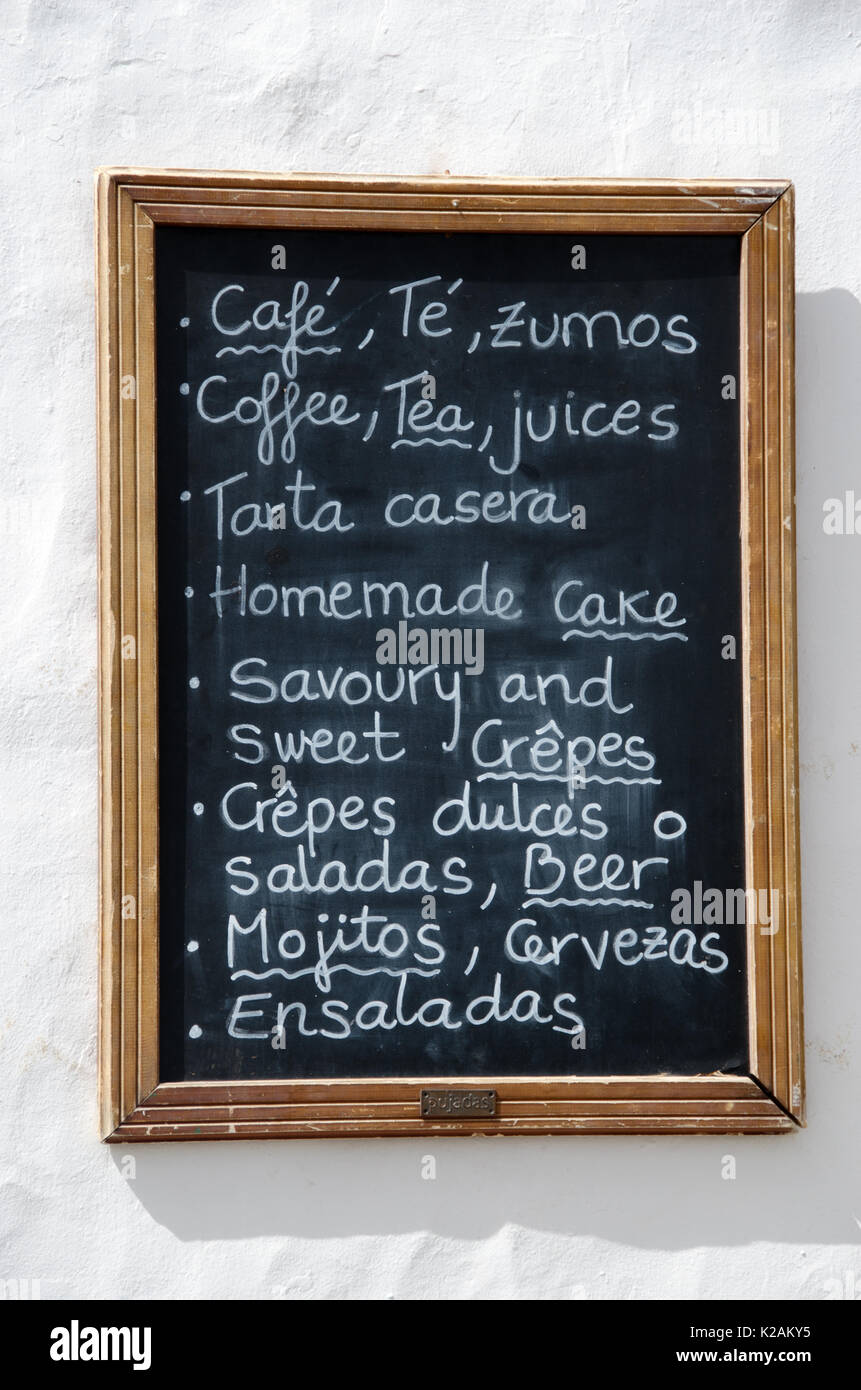 • Café, Té, zumos
• Coffee, Tea, juices
• Tarta casera
• Homemade Cake
• Savoury and
sweet Crêpes
• Crêpes dulces o
saladas, Beer
• Mojitos, Cervezas
• Ensaladas
pujadas
alamy stock photo
K2AKY5
www.alamy.com